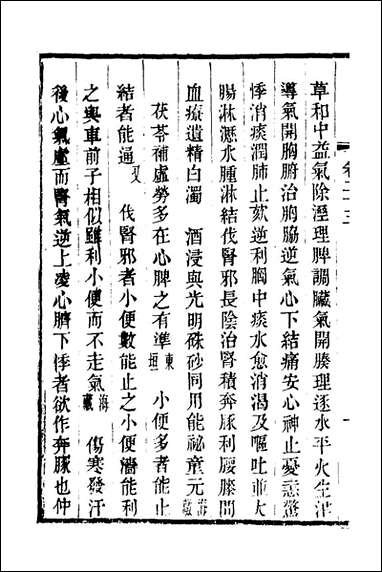 草和中益氣除溼理脾調臟氣開腠理逐水平火生津
導氣開胸腑治胸脇逆氣心下結痛安心神止憂恚驚
悸消痰潤肺止欬逆利胸中痰水愈消渴及嘔吐並大
腸淋瀝水腫淋結伐腎邪長陰治腎積奔豚利腰膝間
血療遺精白濁 酒浸與光明硃砂同用能祕童元海藏
茯苓補虛勞多在心脾之有準東垣 小便多者能止
結者能通又 伐腎邪者小便數能止之小便濇能利
之與車前子相似雖利小便而不走氣海藏 傷寒發汗
後心氣虛而腎氣逆上凌心臍下悸者欲作奔豚也仲
卷二十三
一